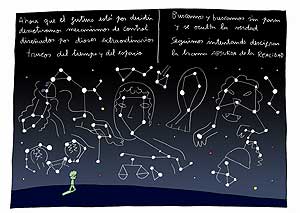 Ahora que el futuro está por decidir
desactivamos mecanismos de control
diseñados por dioses extraordinarios
trucos del tiempo y del espacio
Buscamos y buscamos sin parar
y se oculta la verdad
Seguimos intentando descifrar
la trama absurda de la realidad